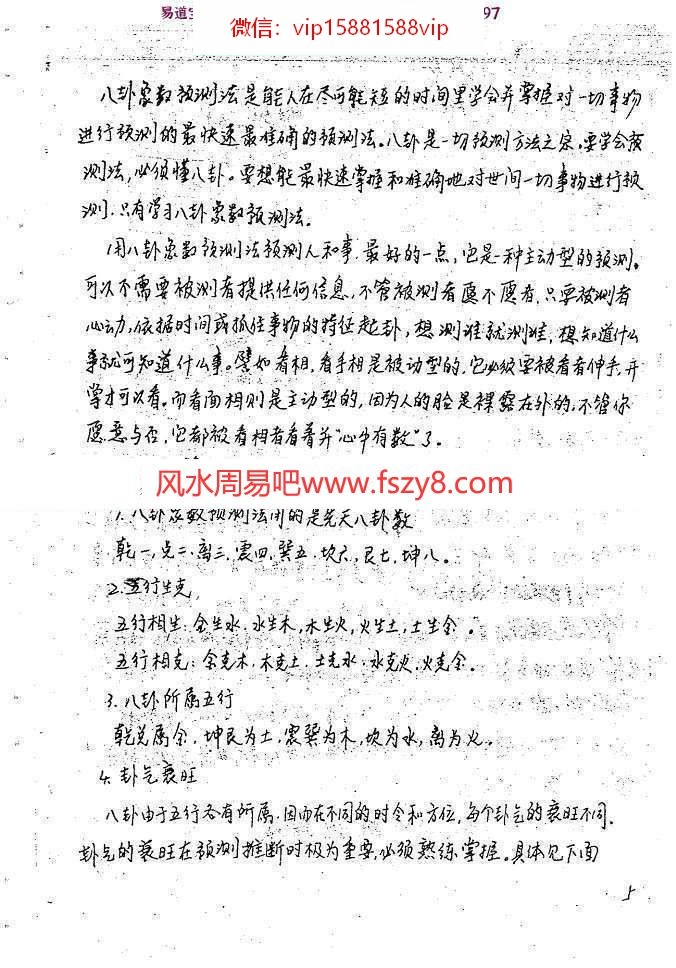 易道
微信：vip15881588vip
97
八卦象数预测法是能人在尽可能短的时间里学会并掌握对一切事物
进行预测的最快速最准确的预测法。八卦是一切预测方法之宗，要学会预
测法，必须懂八卦。要想能最快速掌握和准确地对世间一切事物进行预
测，只有学习八卦象数预测法。
用八卦象数预测法预测人和事，最好的一点，它是一种主动型的预测。
可以不需要被测者提供任何信息，不管被测者愿不愿者，只要被测者
心动，依据时间或抓住事物的特征起卦，想测谁就测谁，想知道什么
事就可知道什么事。譬如看相，看手相是被动型的，它必须要被看者伸手，开
掌才可以看。而看面相则是主动型的，因为人的脸是裸露在外的，不管你
愿意与否，它都被看相者看着并“心中有数”了。
风水周易吧www.fszy8.com
1.八卦象数预测法用的是先天八卦数
乾一，兑二，离三，震四，巽五，坎六，艮七，坤八。
2.五行生克
五行相生：金生水，水生木，木生火，火生土，土生金。
五行相克：金克木，木克土，土克水，水克火，火克金。
3.八卦所属五行
乾兑属金，坤艮为土，震巽为木，坎为水，离为火。
4.卦气衰旺
八卦由于五行各有所属，因而在不同的时令和方位，每个卦气的衰旺不同。
卦气的衰旺在预测推断时极为重要，必须熟练掌握。具体见下面
5